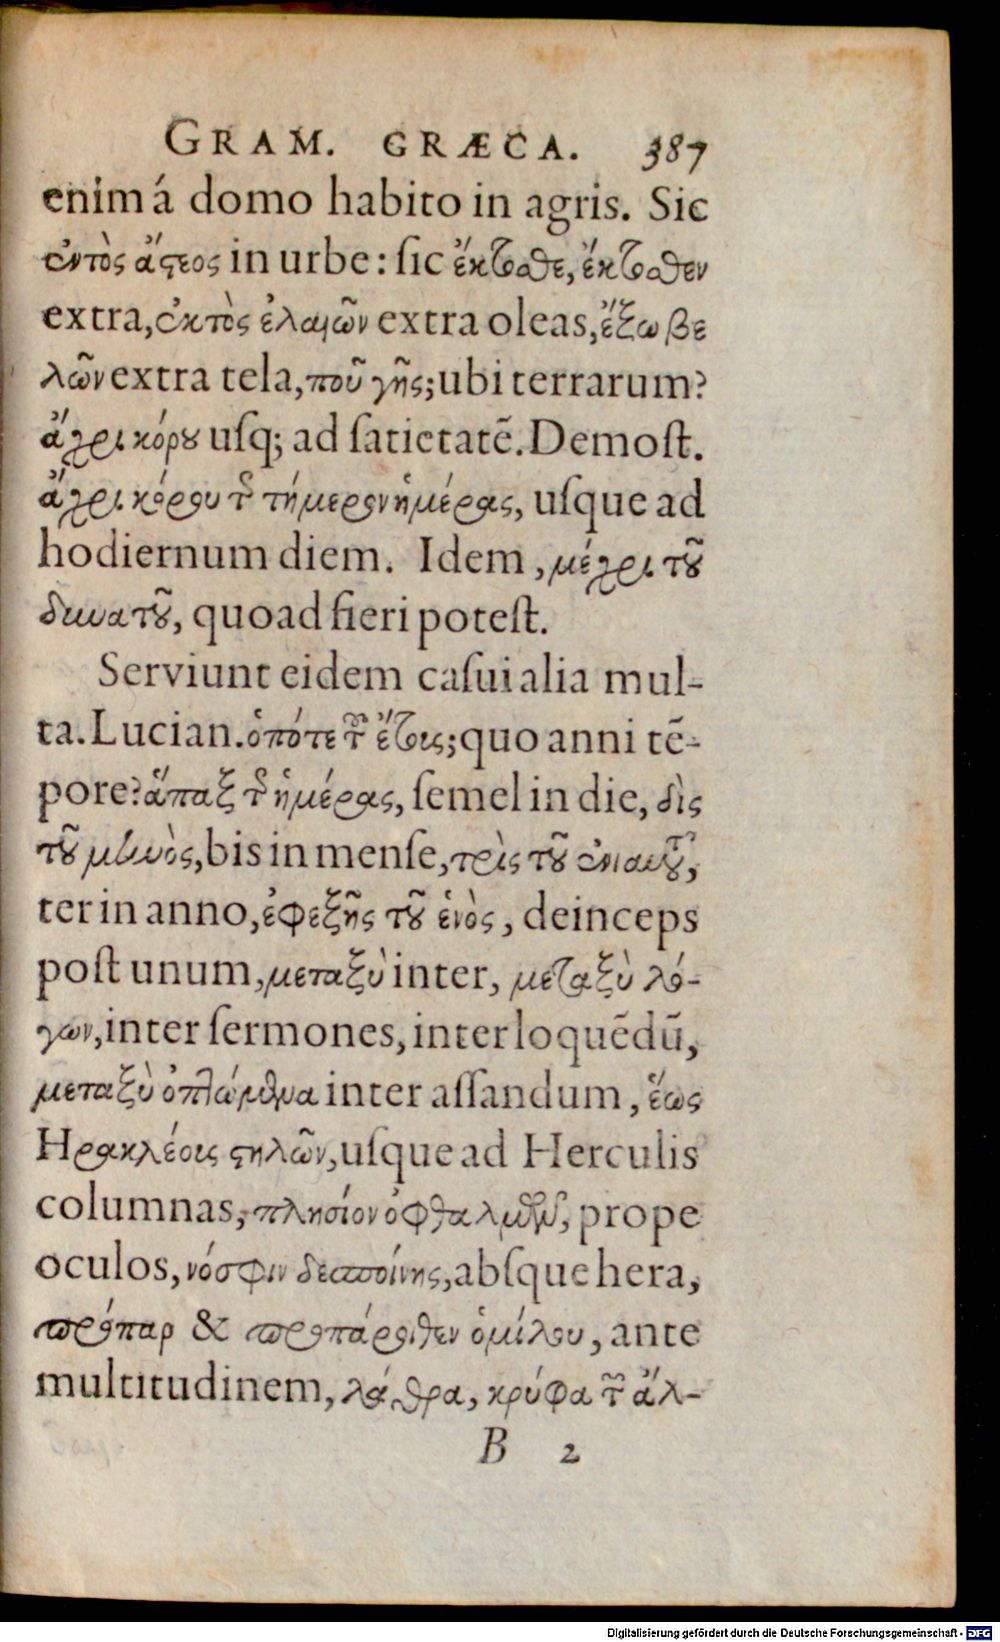 GRAM. GRÆCA. 387
enim á domo habito in agris. Sic
ἐντὸς ἄϛεος in urbe: ſic ἔκτοθε, ἔκτοθεν
extra, ἐκτὸς ἐλαιῶν extra oleas, ἔξω βε
λῶν extra tela, ποῦ γῆς; ubi terrarum?
ἄχρι κόρȣ uſq; ad ſatietatē. Demoſt.
ἄχρι κόρου τῆς τήμερον ἡμέρας, uſque ad
hodiernum diem. Idem, μέχρι τȣ͂
δυνατȣ͂, quoad fieri poteſt.
Serviunt eidem caſui alia mul-
ta. Lucian. ὁπότε τοῦ ἔτους; quo anni tē-
pore? ἅπαξ τῆς ἡμέρας, ſemel in die, δὶς
τȣ͂ μηνὸς, bis in menſe, τρὶς τȣ͂ ἐνιαυτȣ͂,
ter in anno, ἐφεξῆς τȣ͂ ἑνὸς, deinceps
poſt unum, μεταξὺ inter, μεταξὺ λό-
γων, inter ſermones, inter loquēdū,
μεταξὺ ὀπλώμενα inter aſſandum, ἕως
Ηρακλέους ϛηλῶν, uſque ad Herculis
columnas, πλησίον ὀφθαλμῶν, prope
oculos, νόσφιν δεσποίνης, abſque hera,
πρόπαρ & προπάροιθεν ὁμίλου, ante
multitudinem, λάθρα, κρύφα τῶν ἄλ-
B 2
Digitalisierung gefördert durch die Deutsche Forschungsgemeinschaft - DFG